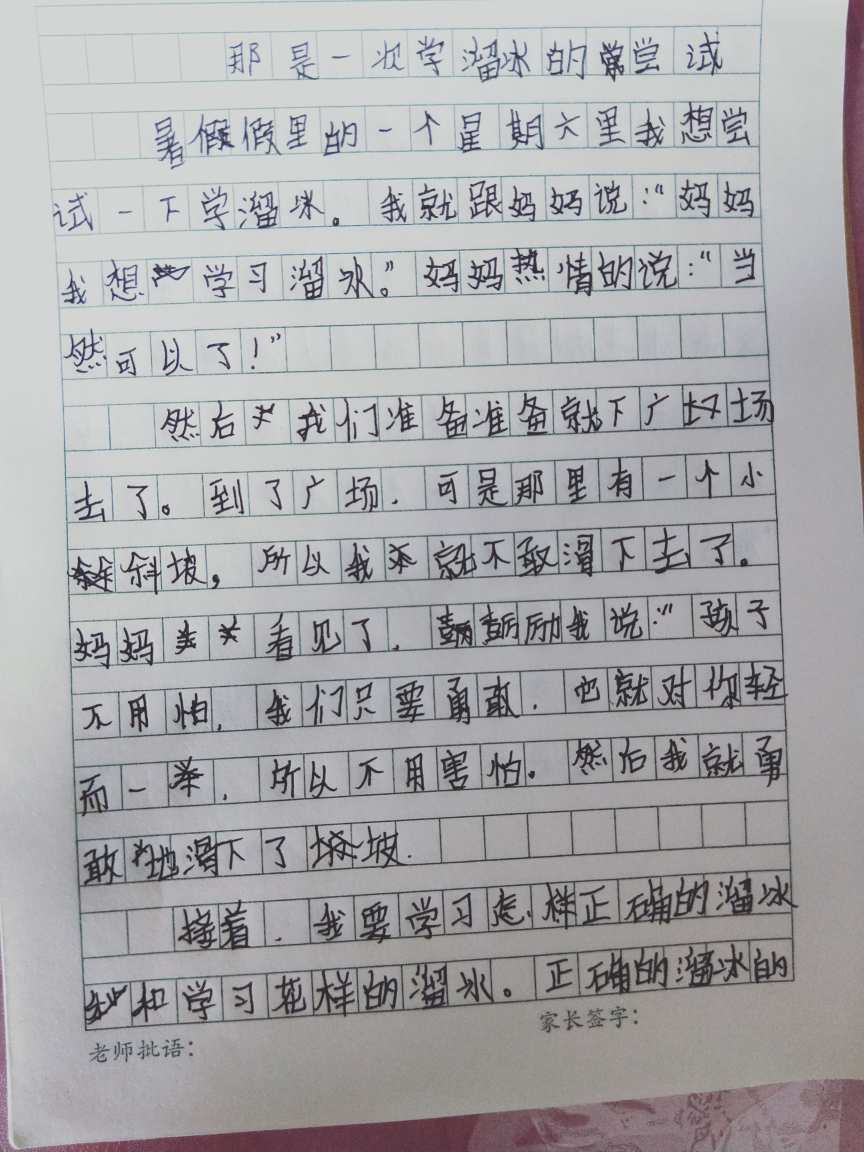 那是一次学溜冰的尝试
暑假里的一个星期六里我想尝
试一下学溜冰。我就跟妈妈说：“妈妈
我想学习溜冰。”妈妈热情的说：“当
然可以了！”
然后我们准备准备就下广场
去了。到了广场，可是那里有一个小
斜坡，所以我就不敢滑下去了。
妈妈看见了，鼓励我说：“孩子
不用怕，我们只要勇敢，它就对你轻
而一举，所以不用害怕。然后我就勇
敢地滑下了坡.
接着，我要学习怎样正确的溜冰
和学习花样的溜冰。正确的溜冰的
老师批语：
家长签字：